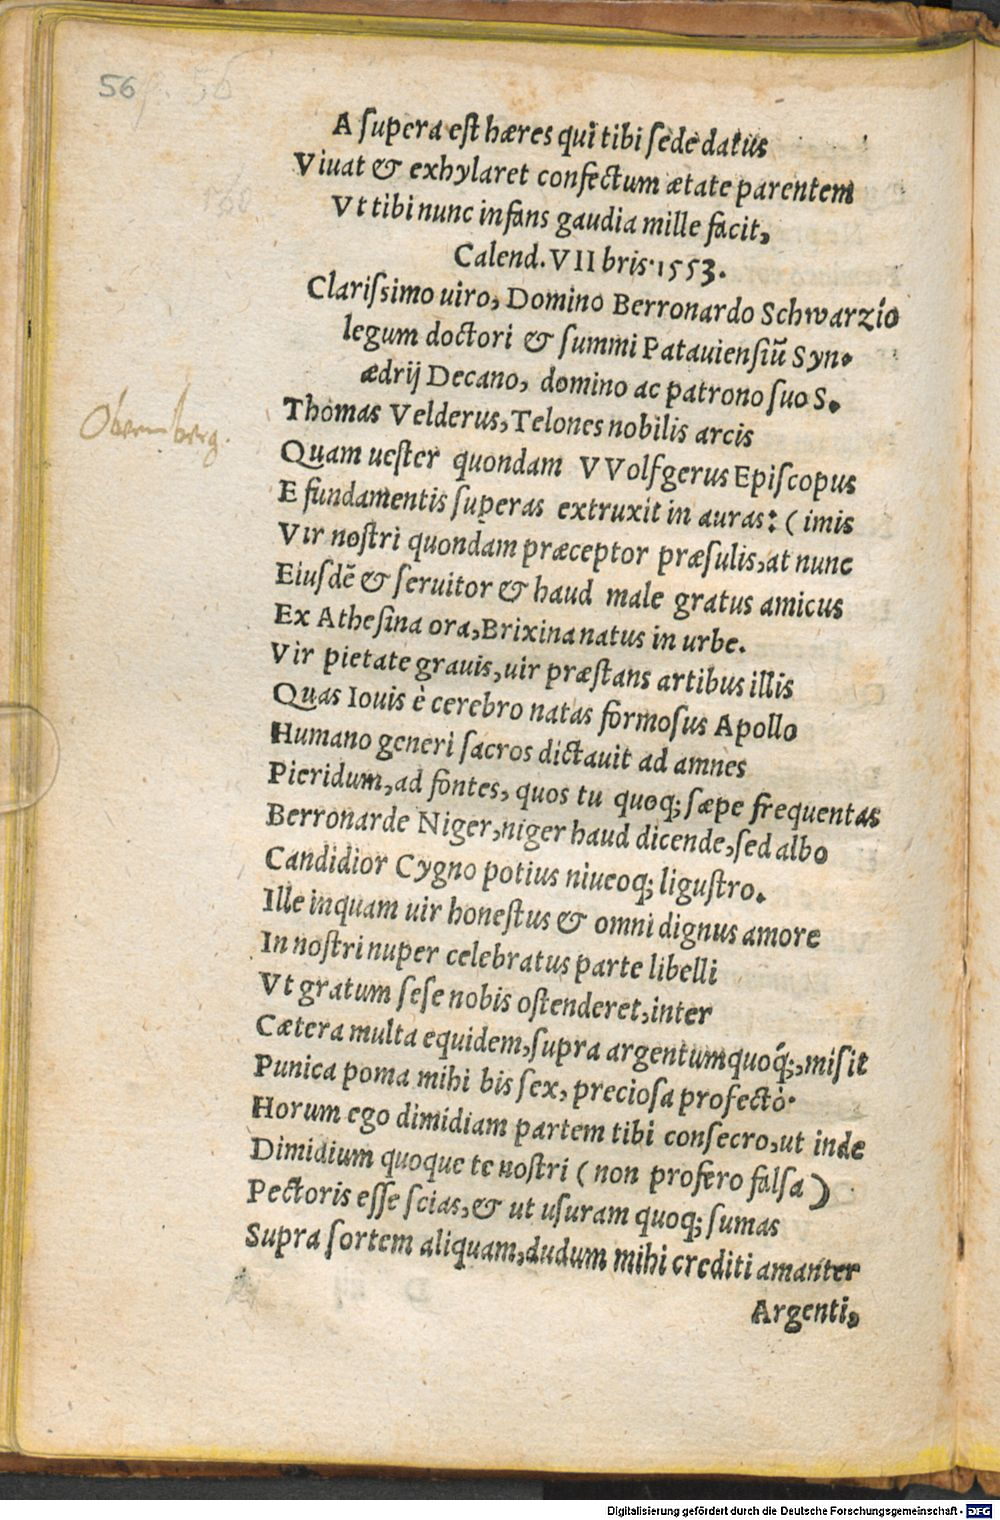 56
A ſupera eſt hæres qui tibi ſede datus
Viuat & exhylaret confectum ætate parentem
Vt tibi nunc infans gaudia mille facit,
Calend. VII bris. 1553.
Clariſsimo uiro, Domino Berronardo Schwarzio
legum doctori & ſummi Patauienſiũ Syn-
ædrij Decano, domino ac patrono ſuo S.
Thomas Velderus, Telones nobilis arcis
Obernberg.
Quam ueſter quondam VVolfgerus Epiſcopus
E fundamentis ſuperas extruxit in auras: (imis
Vir noſtri quondam præceptor præſulis, at nunc
Eiuſdẽ & ſeruitor & haud male gratus amicus
Ex Atheſina ora, Brixina natus in urbe.
Vir pietate grauis, uir præſtans artibus illis
Quas Iouis è cerebro natas formoſus Apollo
Humano generi ſacros dictauit ad amnes
Pieridum, ad fontes, quos tu quoq; ſæpe frequentas
Berronarde Niger, niger haud dicende, ſed albo
Candidior Cygno potius niueoq; liguſtro.
Ille inquam uir honeſtus & omni dignus amore
In noſtri nuper celebratus parte libelli
Vt gratum ſeſe nobis oſtenderet, inter
Cætera multa equidem, ſupra argentum quoq́;, miſit
Punica poma mihi bis ſex, precioſa profectò.
Horum ego dimidiam partem tibi conſecro, ut inde
Dimidium quoque te noſtri (non profero falſa)
Pectoris eſſe ſcias, & ut uſuram quoq; ſumas
Supra ſortem aliquam, dudum mihi crediti amanter
Argenti,
Digitalisierung gefördert durch die Deutsche Forschungsgemeinschaft - DFG